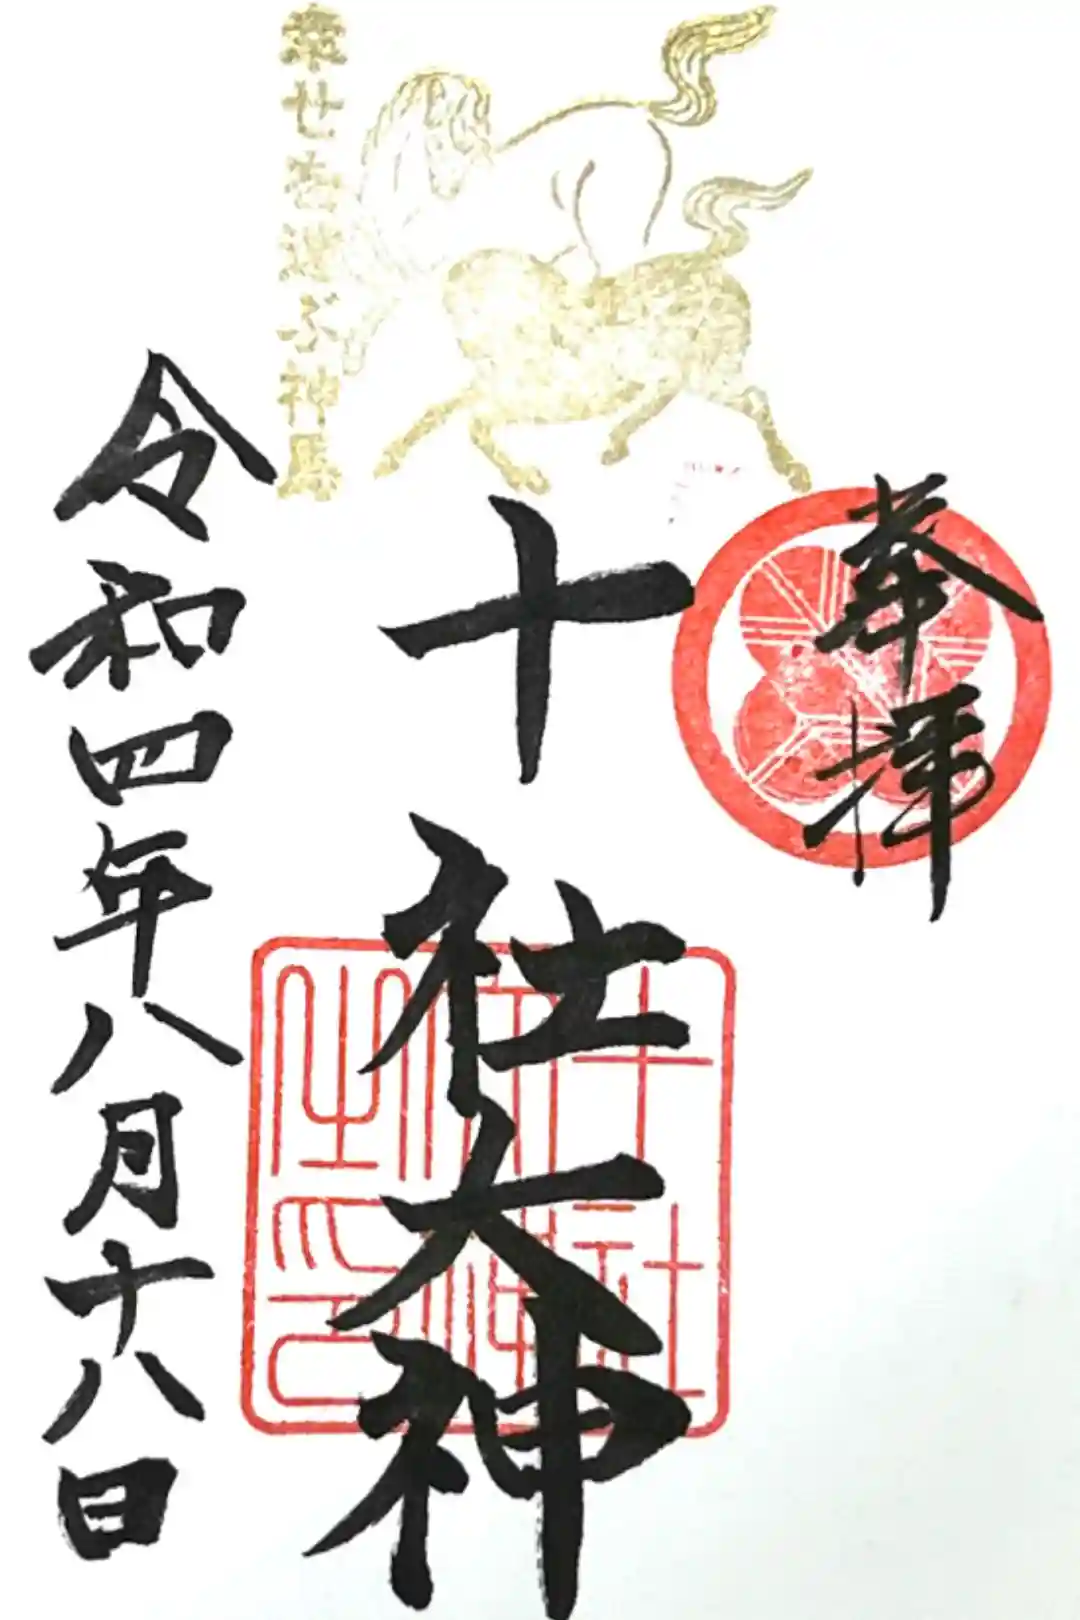 奉拝
十社大神
十社大神之印
幸せを運ぶ神馬
令和四年八月十八日